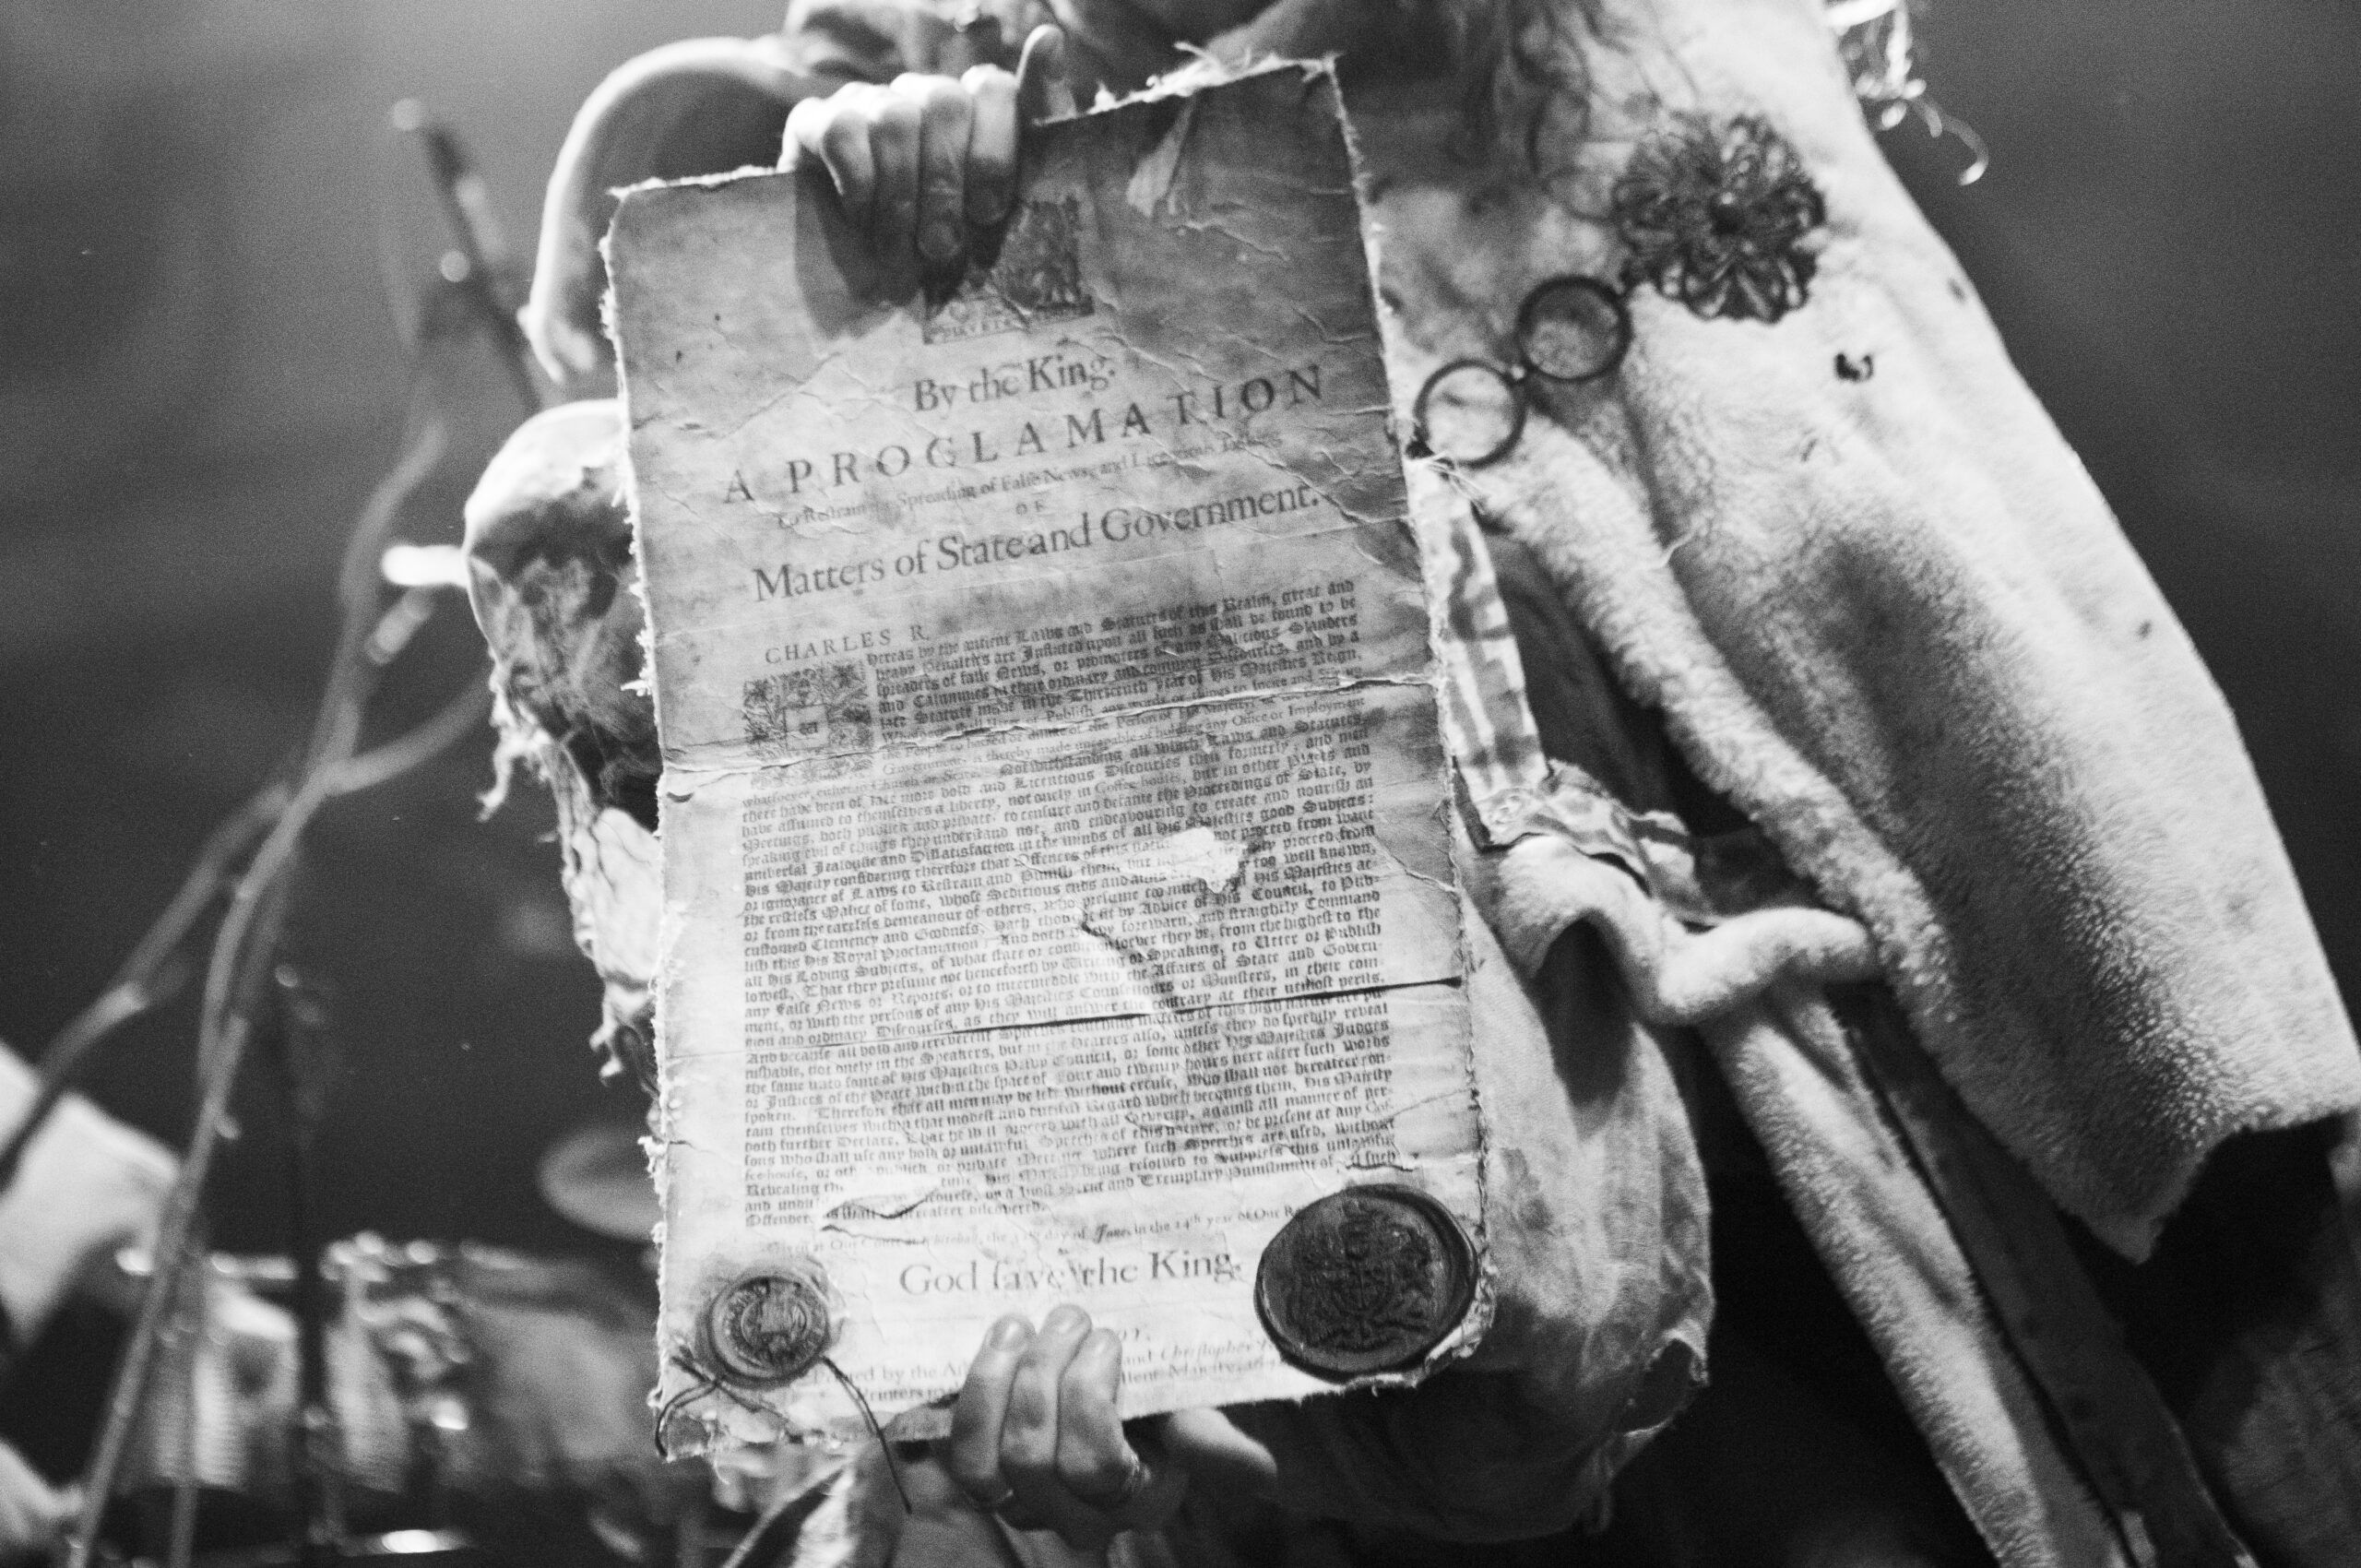 By the King.
A PROCLAMATION
To Reſtrain the Spreading of Falſe News, and Licentious Talking
OF
Matters of State and Government.
CHARLES R.
hereas by the antient Laws and Statutes of this Realm, great and
heavy Penalties are Inflicted upon all ſuch as ſhall be found to be
ſpreaders of falſe News, or promoters of any Malicious Slanders
and Calumnies in their ordinary and common Diſcourſes, and by a
late Statute made in the Thirteenth year of His Majeſties Reign,
Publiſh any words or things to Incite and
the People to hatred or diſlike of the Perſon of His Majeſty, or
Government, is thereby made uncapable of holding any Office or Employment
whatſoever, either in Church or State: Notwithſtanding all which Laws and Statutes,
there have been of late more bold and Licentious Diſcourſes then formerly, and men
have aſſumed to themſelves a liberty, not onely in Coffee-houſes, but in other Places and
Meetings, both publick and private, to cenſure and defame the Proceedings of State, by
ſpeaking evil of things they underſtand not, and endeavouring to create and nouriſh an
univerſal Jealouſie and Diſſatisfaction in the minds of all His Majeſties good Subjects:
His Majeſty conſidering therefore that Offences of this nature not proceed from want
or ignorance of Laws to Reſtrain and Puniſh them, but proceed from
the reſtleſs Malice of ſome, whoſe Seditious ends and aims too well known,
or from the careleſs demeanour of others, who preſume too much His Majeſties ac-
cuſtomed Clemency and Goodneſs; Hath thought fit by Advice of His Council, to Pub-
liſh this His Royal Proclamation: And doth hereby forewarn, and ſtraightly Command
all His Loving Subjects, of what ſtate or condition ſoever they be, from the higheſt to the
loweſt, That they preſume not henceforth by Writing or Speaking, to Utter or Publiſh
any Falſe News or Reports, or to intermeddle with the Affairs of State and Govern-
ment, or with the perſons of any His Majeſties Counſellours or Miniſters, in their com-
mon and ordinary Diſcourſes, as they will anſwer the contrary at their utmoſt perils.
And becauſe all bold and irreverent Speeches touching matters of this high nature are pu-
niſhable, not onely in the Speakers, but in the Hearers alſo, unleſs they do ſpeedily reveal
the ſame unto ſome of His Majeſties Privy Council, or ſome other His Majeſties Judges
or Juſtices of the Peace within the ſpace of Four and twenty hours next after ſuch words
ſpoken. Therefore that all men may be left without excuſe, who ſhall not hereafter con-
tain themſelves within that modeſt and dutiful Regard which becomes them, His Majeſty
doth further Declare, That he will proceed with all Severity, againſt all manner of per-
ſons who ſhall uſe any bold or unlawful Speeches of this nature, or be preſent at any Cof-
fee-houſe, or publick or private Meeting where ſuch Speeches are uſed, without
Revealing the time, His Majeſty being reſolved to ſuppreſs this unlawful
and courſe, by a moſt Strict and Exemplary Puniſhment of all ſuch
Offenders as ſhall hereafter diſcovered.
Given at Our Court at Whitehall, the day of June, in the 24th year of Our
God ſave the King.
by the and Chriſtopher
Printers